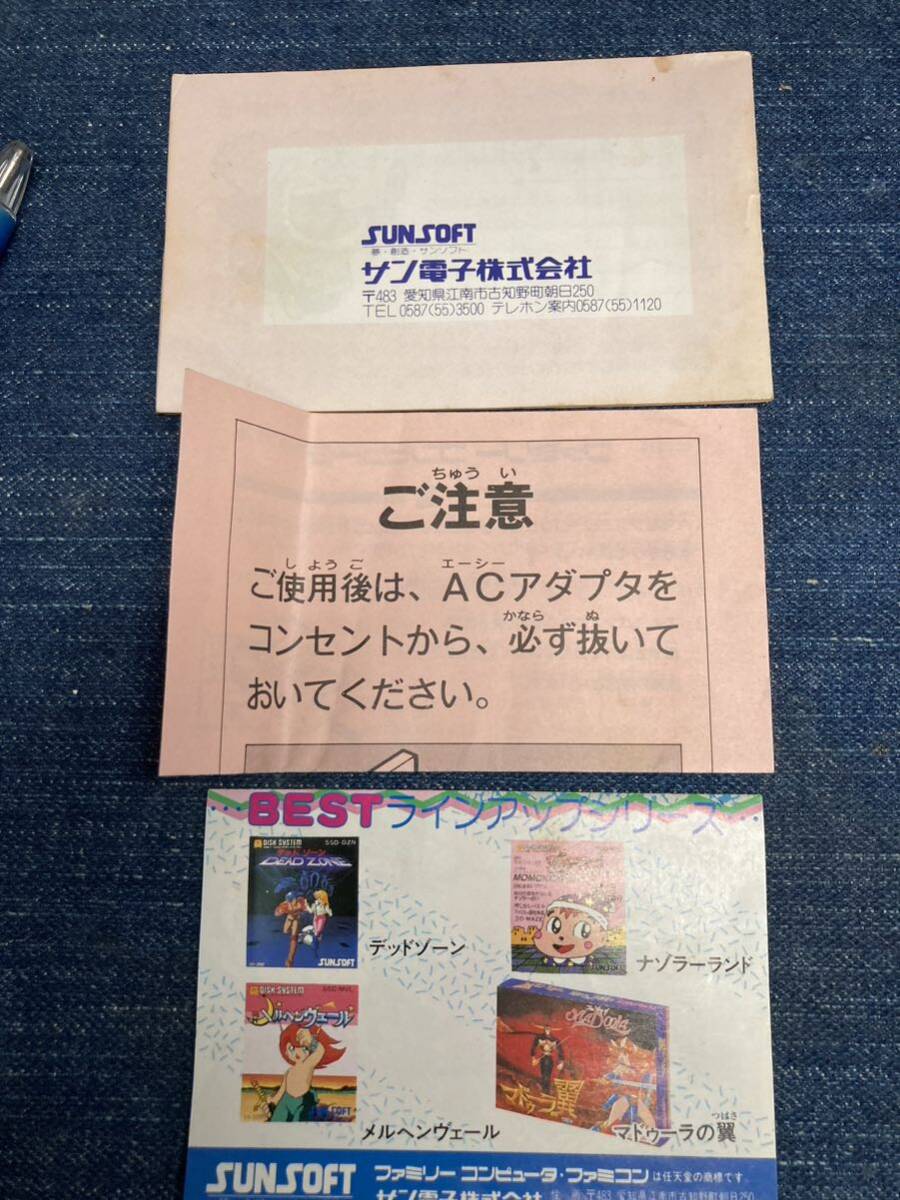 SUNSOFT
夢・創造・サンソフト
サン電子株式会社
〒483 愛知県江南市古知野町朝日250
TEL 0587(55)3500 テレホン案内0587(55)1120
ちゅう い
ご注意
し よう ご エーシー
ご使用後は、ACアダプタを
かなら ぬ
コンセントから、必ず抜いて
おいてください。
BESTラインアップシリーズ
DISK SYSTEM SSD-DZN
デッド ゾーン
DEAD ZONE
SUNSOFT
デッドゾーン
SUNSOFT
ナゾラーランド
DISK SYSTEM SSD-MVL
メルヘンヴェール
メルヘンヴェール
つばさ
マドゥーラの翼
SUNSOFT
ファミリー コンピュータ・ファミコンは任天堂の商標です
サン電子株式会社
〒483 愛知県江南市古知野町朝日250